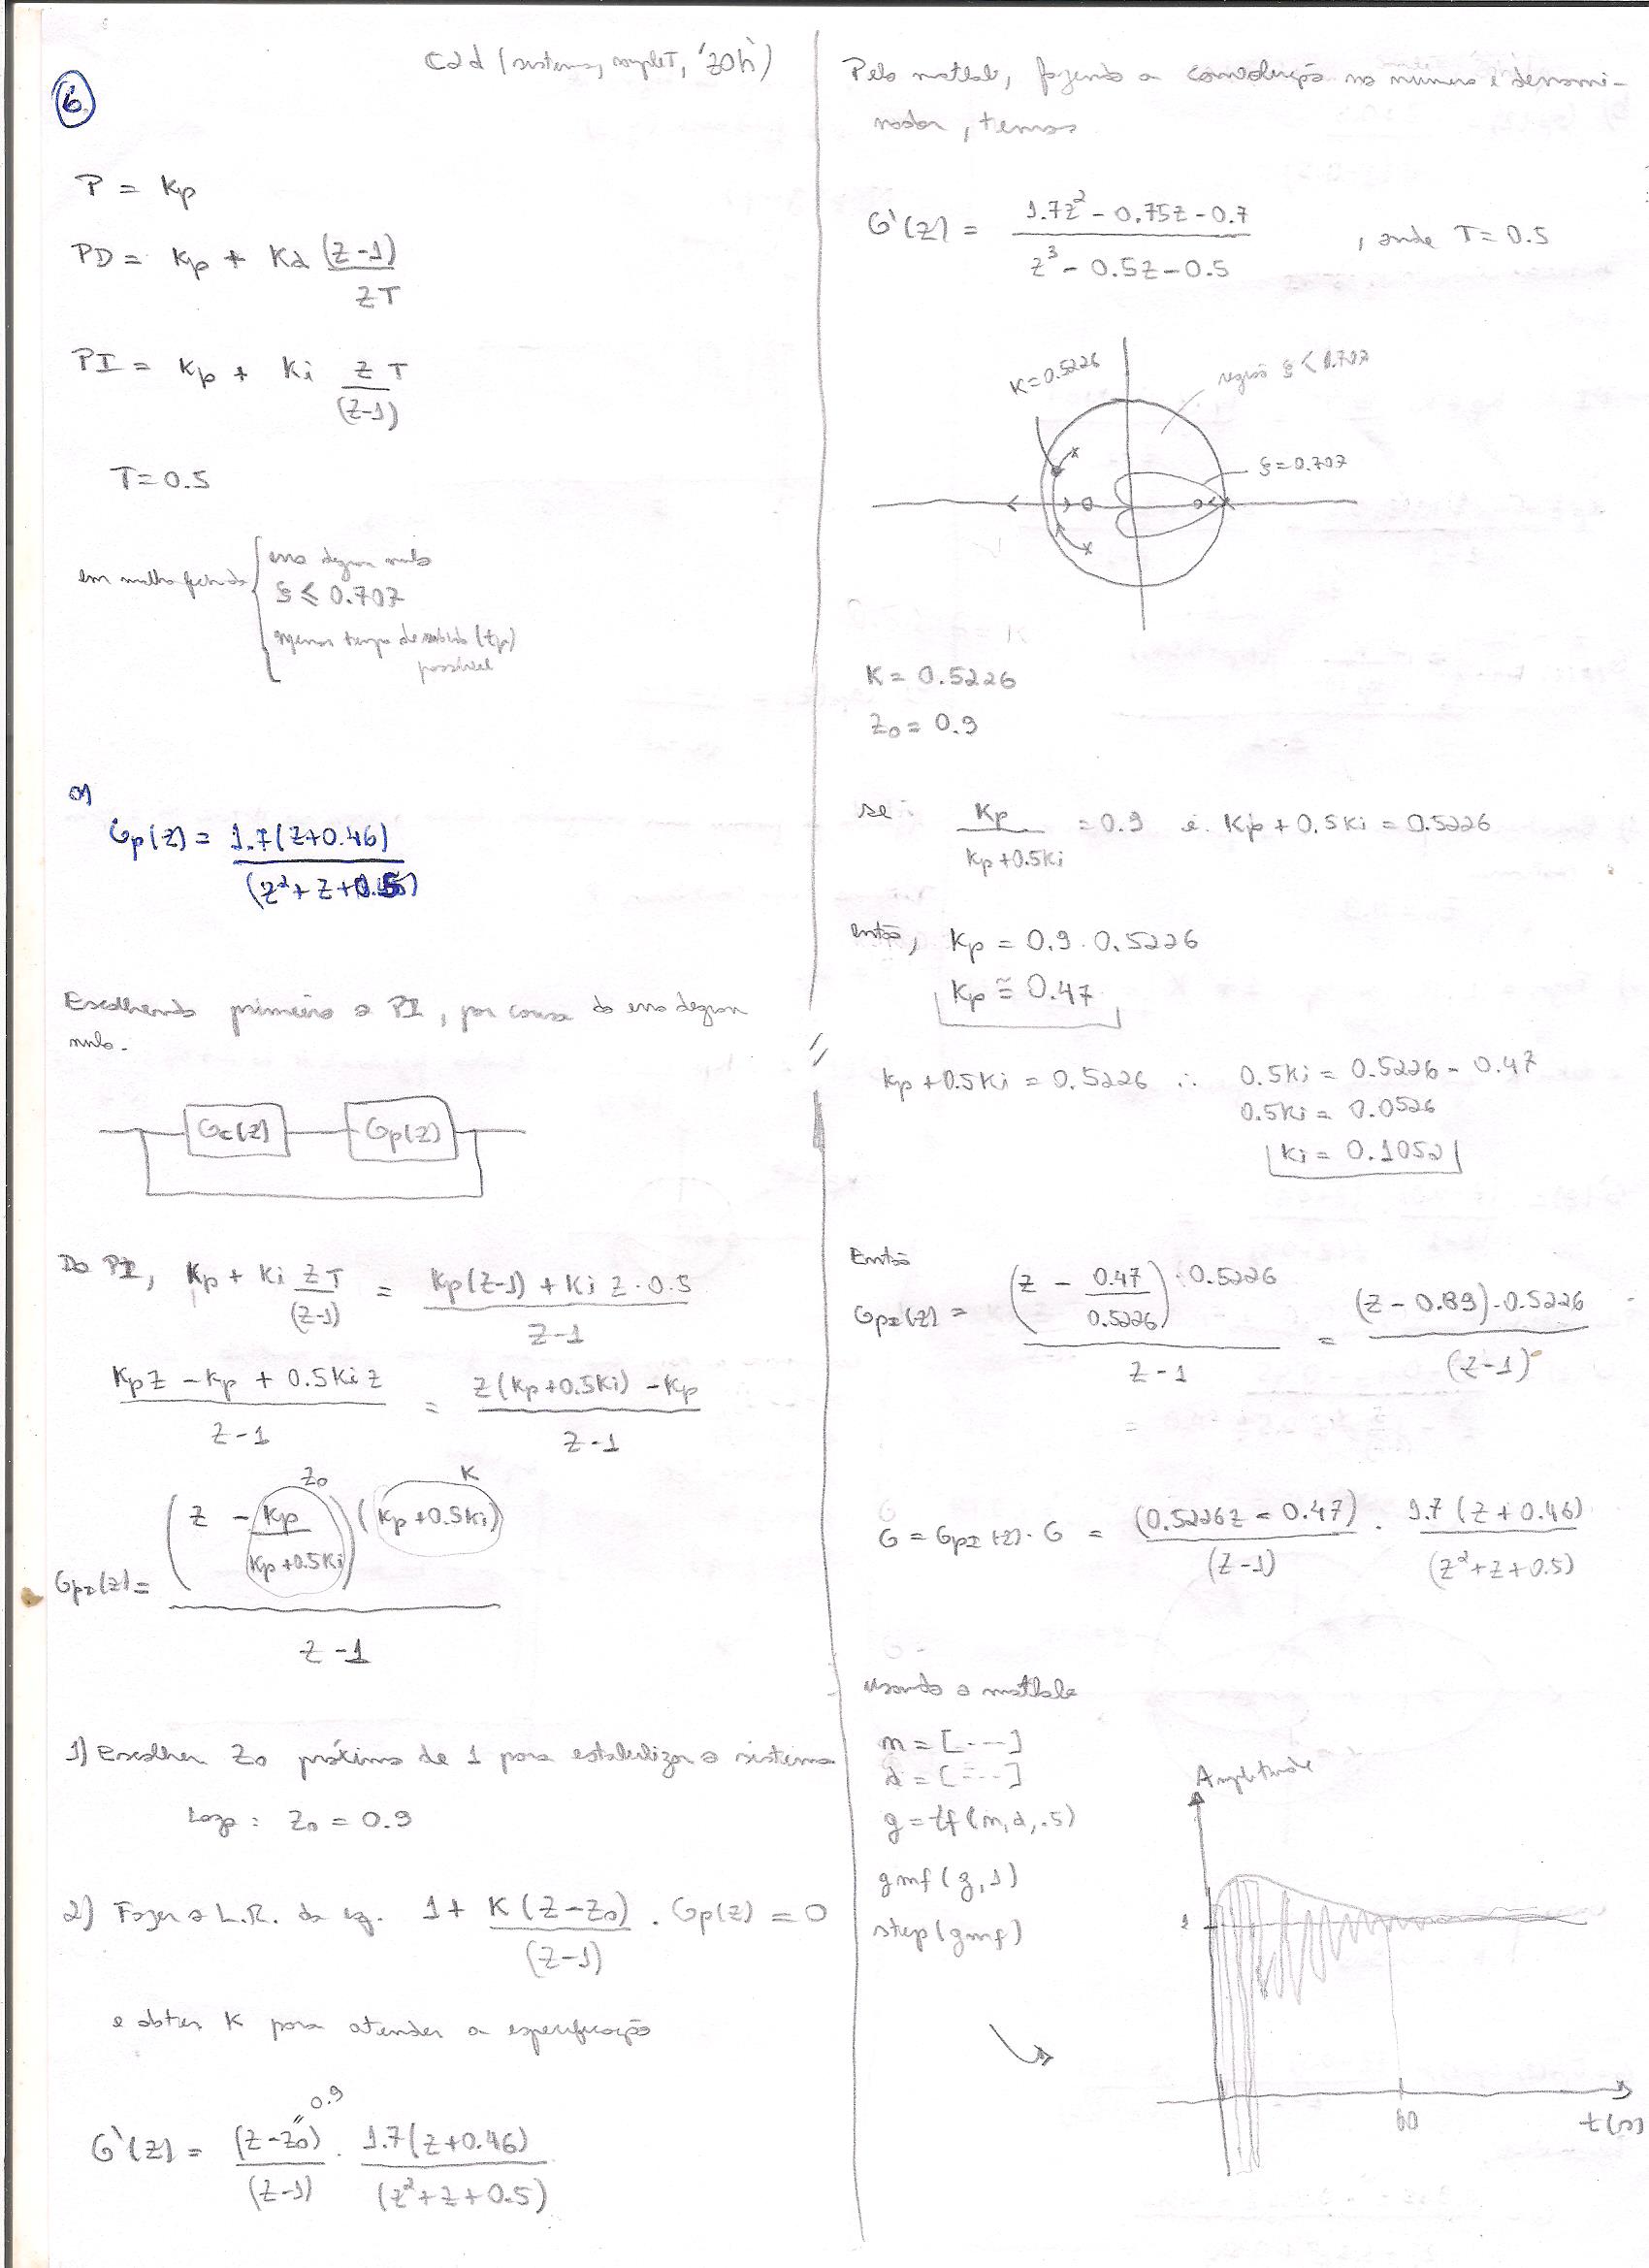 c2d (sistema, sampleT, 'zoh')
6
P = Kp
PD = Kp + Kd (z-1)/zT
PI = Kp + Ki zT/(z-1)
T=0.5
em malha fechada { erro degrau nulo
ξ ≤ 0.707
menor tempo de subida (tp)
possível
a)
Gp(z) = 1.7(z+0.46)/(z²+z+0.5)
Escolhendo primeiro o PI, por causa do erro degrau
nulo.
Gc(z) Gp(z)
Do PI, Kp + Ki zT/(z-1) = Kp(z-1) + Ki z·0.5/z-1
Kpz - Kp + 0.5Kiz/z-1 = z(Kp+0.5Ki) - Kp/z-1
z0 K
GPI(z) = (z - Kp/Kp+0.5Ki)(Kp+0.5Ki)/z-1
1) Escolher z0 próximo de 1 para estabilizar o sistema
Logo: z0 = 0.9
2) Fazer o L.R. da eq. 1+ K(z-z0)/(z-1) . Gp(z) = 0
e obter K para atender a especificação
G'(z) = (z-z0)/(z-1) . 1.7(z+0.46)/(z²+z+0.5)
= 0.9
Pelo matlab, fazendo a convolução no número e denomi-
nador, temos
G'(z) = 1.7z² - 0.75z - 0.7/z³ - 0.5z - 0.5 , onde T = 0.5
K=0.5226
região ξ < 0.707
ξ=0.707
K = 0.5226
z0 = 0.9
se: Kp/Kp+0.5Ki = 0.9 e Kp + 0.5Ki = 0.5226
então, Kp = 0.9 . 0.5226
Kp ≅ 0.47
Kp+0.5Ki = 0.5226 ∴ 0.5Ki = 0.5226 - 0.47
0.5Ki = 0.0526
Ki = 0.1052
Então
GPI(z) = (z - 0.47/0.5226)·0.5226/z-1 = (z-0.89)·0.5226/(z-1)
G = GPI(z)·G = (0.5226z - 0.47)/(z-1) . 1.7(z+0.46)/(z²+z+0.5)
usando o matlab
n = [---]
d = [---]
g = tf(n,d,.5)
gmf(g,1)
step(gmf)
Amplitude
1
60
t(s)